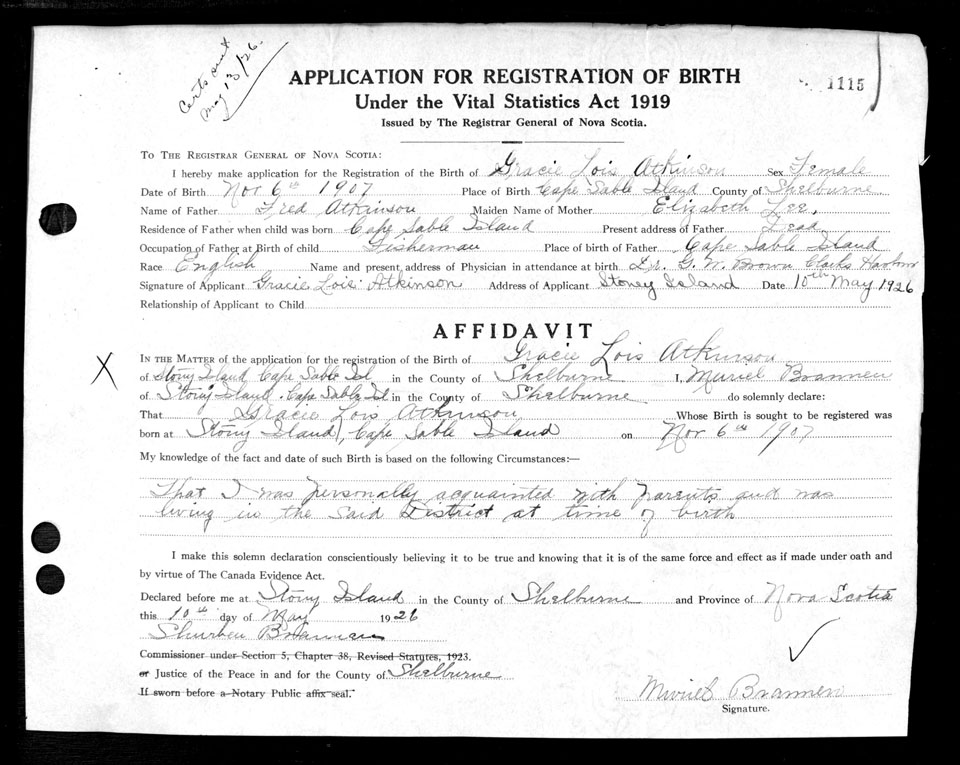 Certs sent
May 13/26.
APPLICATION FOR REGISTRATION OF BIRTH
1115
Under the Vital Statistics Act 1919
Issued by The Registrar General of Nova Scotia.
TO THE REGISTRAR GENERAL OF NOVA SCOTIA:
I hereby make application for the Registration of the Birth of Gracie Lois Atkinson Sex Female
Date of Birth Nov 6th 1907 Place of Birth Cape Sable Island County of Shelburne
Name of Father Fred Atkinson Maiden Name of Mother Elizabeth
Residence of Father when child was born Cape Sable Island Present address of Father Dead
Occupation of Father at Birth of child Fisherman Place of birth of Father Cape Sable Island
Race English Name and present address of Physician in attendance at birth Dr. G. W. Brown Clarks Harbour
Signature of Applicant Gracie Lois Atkinson Address of Applicant Stoney Island Date 10th May 1926
Relationship of Applicant to Child
AFFIDAVIT
X IN THE MATTER of the application for the registration of the Birth of Gracie Lois Atkinson
of Stony Island Cape Sable Isl in the County of Shelburne I, Muriel Brannen
of Stony Island. Cape Sable Isl in the County of Shelburne do solemnly declare:
That Gracie Lois Atkinson Whose Birth is sought to be registered was
born at Stony Island, Cape Sable Island on Nov 6th 1907
My knowledge of the fact and date of such Birth is based on the following Circumstances:—
That I was personally acquainted with Parents and was
living in the said District at time of birth
I make this solemn declaration conscientiously believing it to be true and knowing that it is of the same force and effect as if made under oath and
by virtue of The Canada Evidence Act.
Declared before me at Stony Island in the County of Shelburne and Province of Nova Scotia
this 10th day of May 1926
Brannen
Commissioner under Section 5, Chapter 38, Revised Statutes, 1923.
or Justice of the Peace in and for the County of Shelburne
If sworn before a Notary Public affix seal.
Muriel Brannen
Signature.